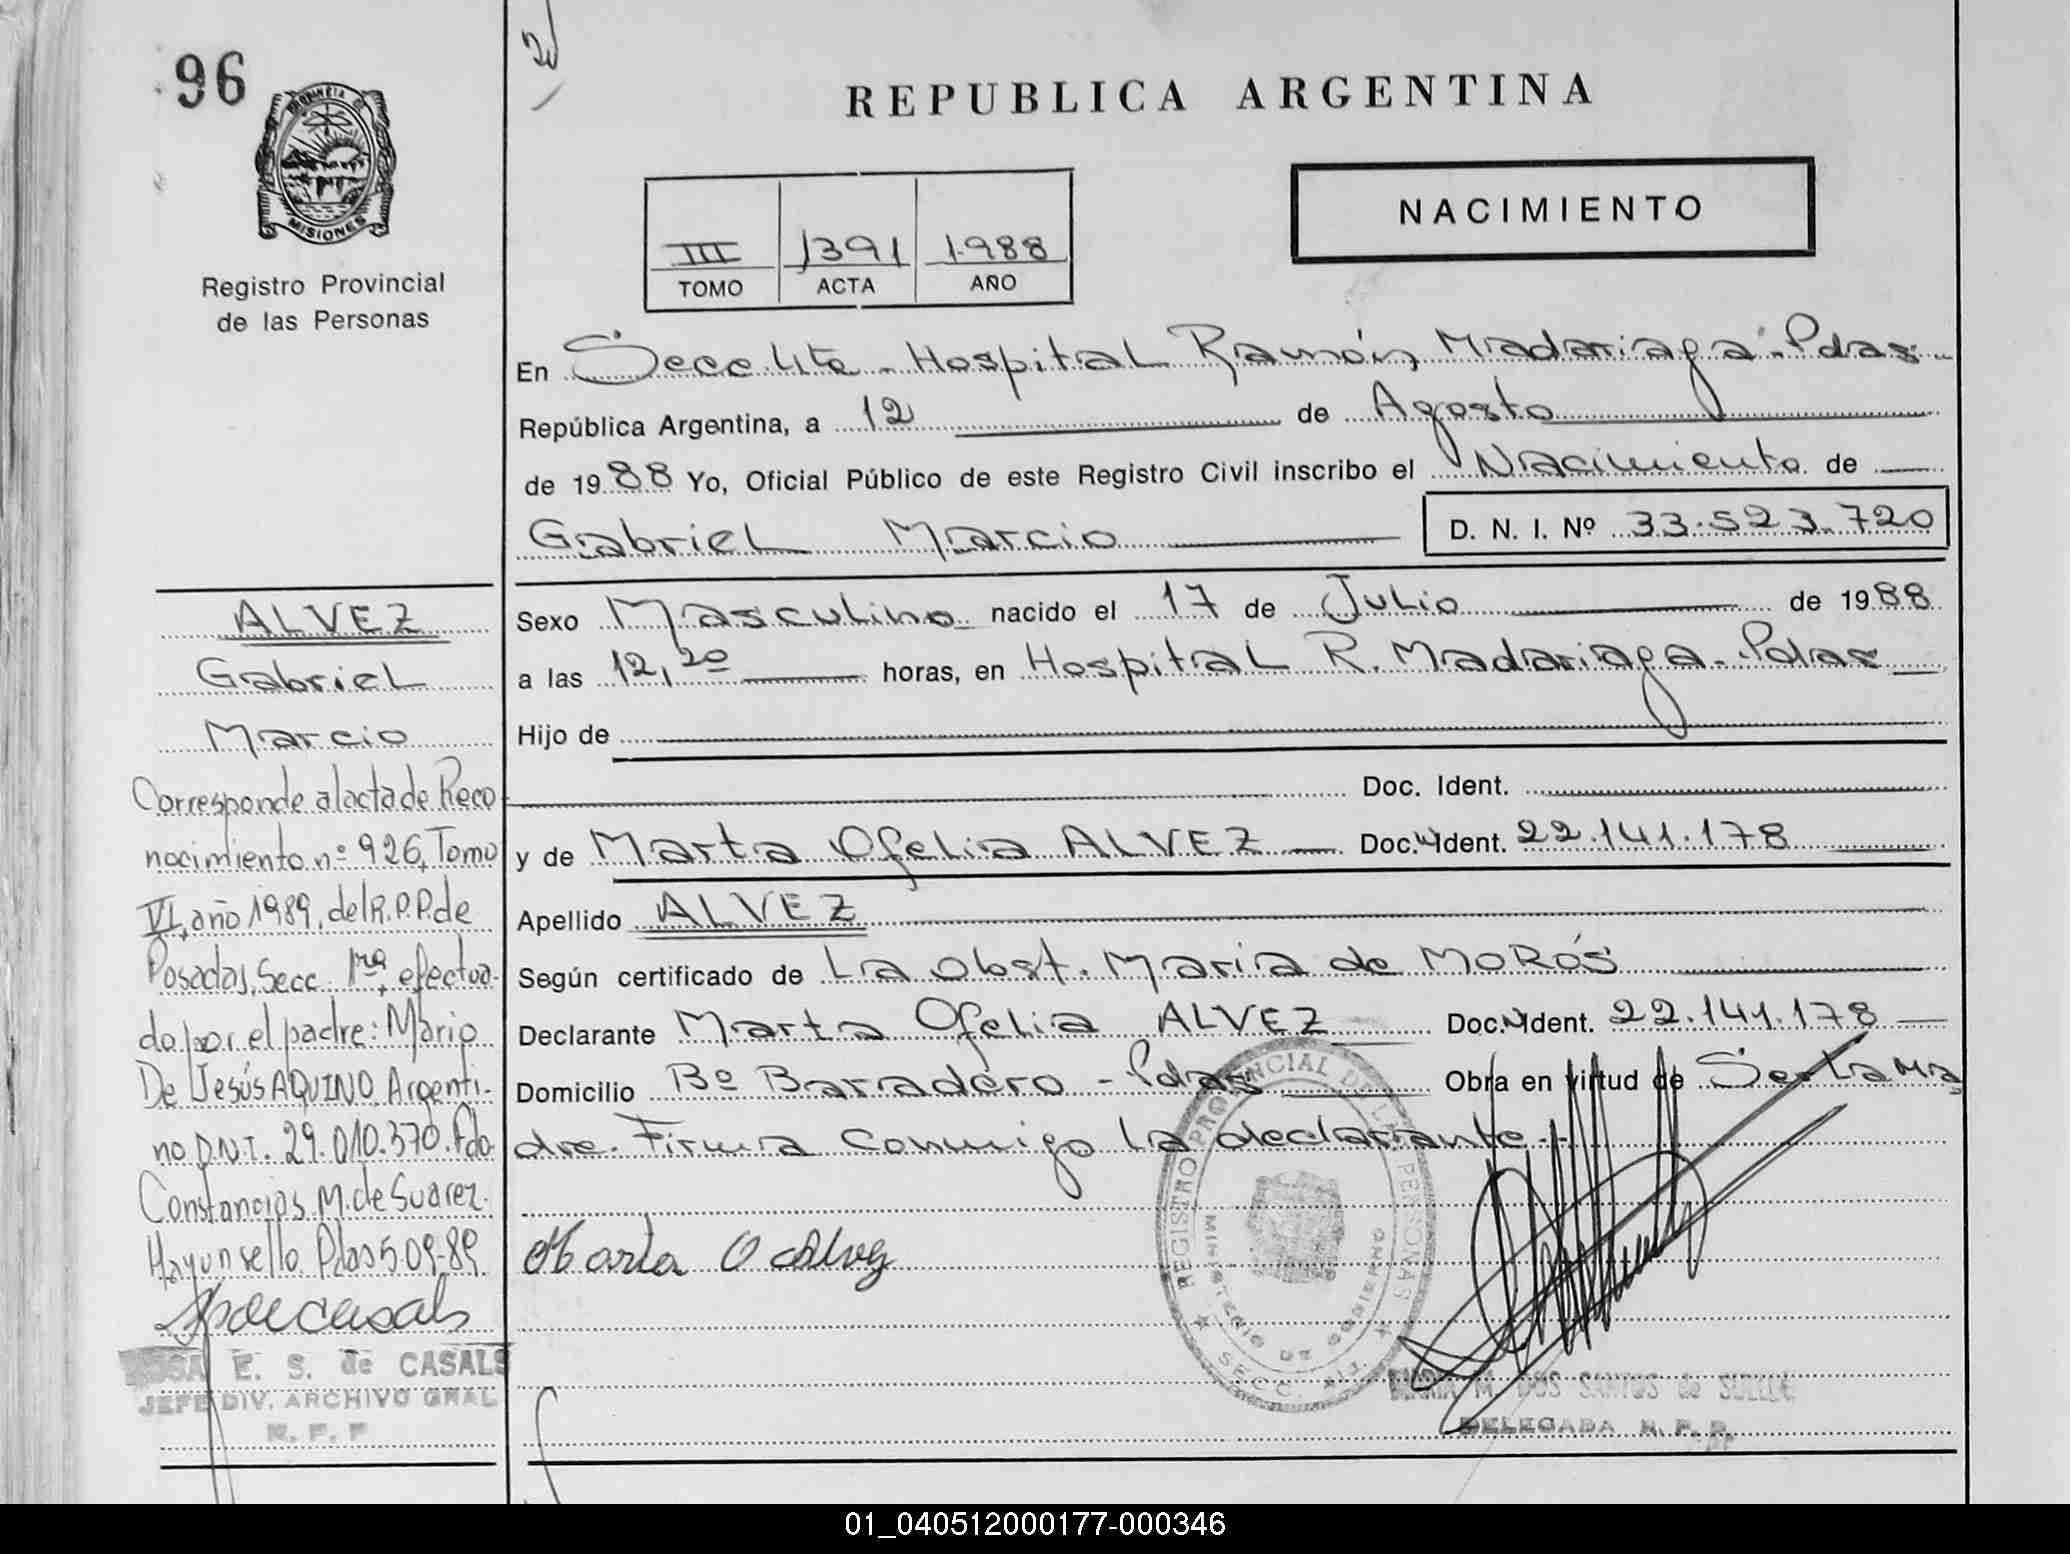 96
PROVINCIA DE
MISIONES
Registro Provincial
de las Personas
REPUBLICA ARGENTINA
NACIMIENTO
III 1391 1.988
TOMO ACTA AÑO
En Secc 4ta - Hospital Ramón Madariaga - Pdas -
República Argentina, a 12 de Agosto
de 1988 Yo, Oficial Público de este Registro Civil inscribo el Nacimiento de
Gabriel Marcio D. N. I. Nº 33.523.720
Sexo Masculino nacido el 17 de Julio de 1988
a las 12,20 horas, en Hospital R. Madariaga - Pdas
Hijo de
Doc. Ident.
y de Marta Ofelia ALVEZ Doc. Ident. 22.141.178
Apellido ALVEZ
Según certificado de La Obst. Maria de MoRós
Declarante Marta Ofelia ALVEZ Doc. Ident. 22.141.178
Domicilio Bº Baradero - Pdas Obra en virtud de Ser La Ma
dre. Firma conmigo la declarante.-
Marta O Alvez
REGISTRO PROVINCIAL DE LAS PERSONAS
MINISTERIO DE GOBIERNO
SECC.
MARIA M. DOS SANTOS de
DELEGADA R. P. P.
ALVEZ
Gabriel
Marcio
Corresponde al acta de Reco
nocimiento nº 926, Tomo
VI, año 1989, del R.P.P. de
Posadas, Secc. 1ra, efectua-
do por el padre: Mario
De Jesús AQUINO, Argenti-
no D.N.I. 29.010.370. Fdo
Constancias M. de Suarez.
Hay un sello. Pdas 5-09-89
E. S. de CASALS
JEFE DIV. ARCHIVO GRAL
R. P. P
01_040512000177-000346